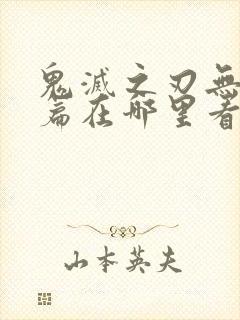 鬼滅之刃無
篇在哪里看
山本英夫